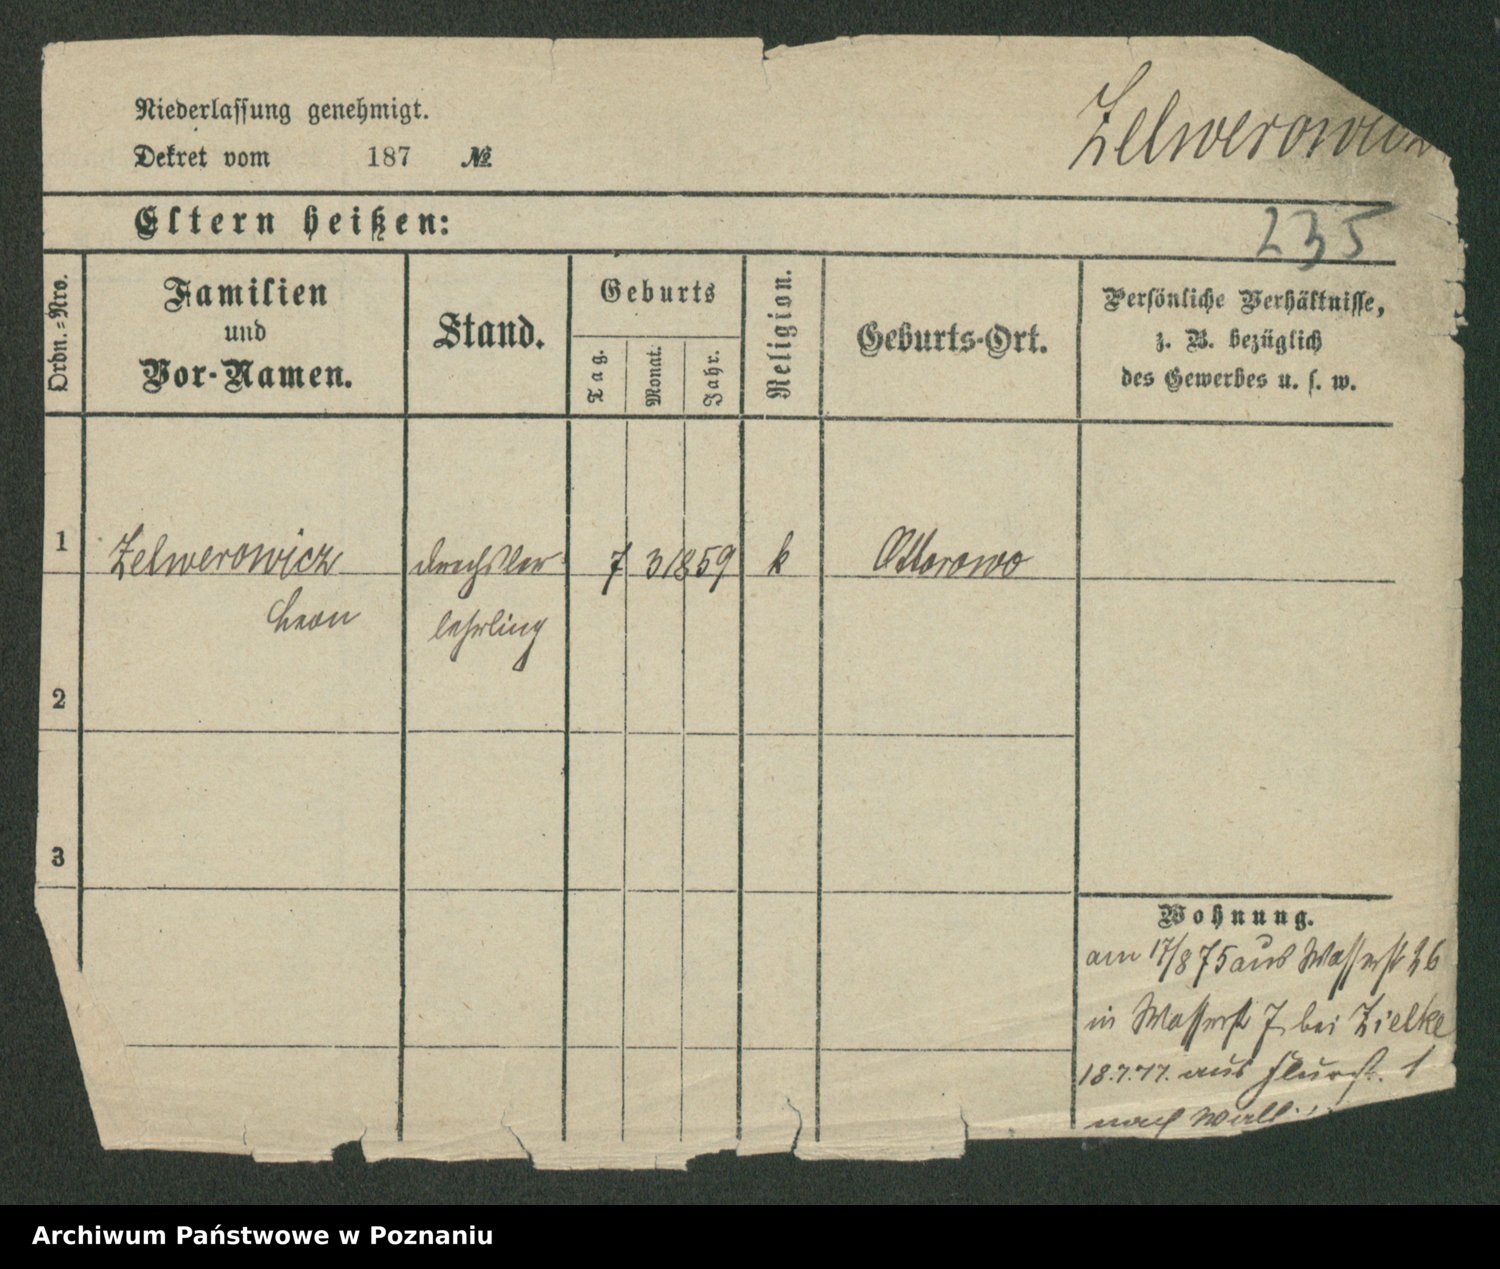 Niederlassung genehmigt.
Zelwerowicz
Dekret vom 187 №
Eltern heißen:
235
Ordn.=Nro.
Familien
und
Vor-Namen.
Stand.
Geburts
Tag.
Monat.
Jahr.
Religion.
Geburts-Ort.
Persönliche Verhältnisse,
z. B. bezüglich
des Gewerbes u. s. w.
1 Zelwerowicz drechsler 7 3 1859 k Ottorowo
Leon lehrling
2
3
Wohnung.
am 17/8 75 aus Wasserstr 26
in Wasserstr 7 bei Zielke
18.7.77. aus 1
nach Wall